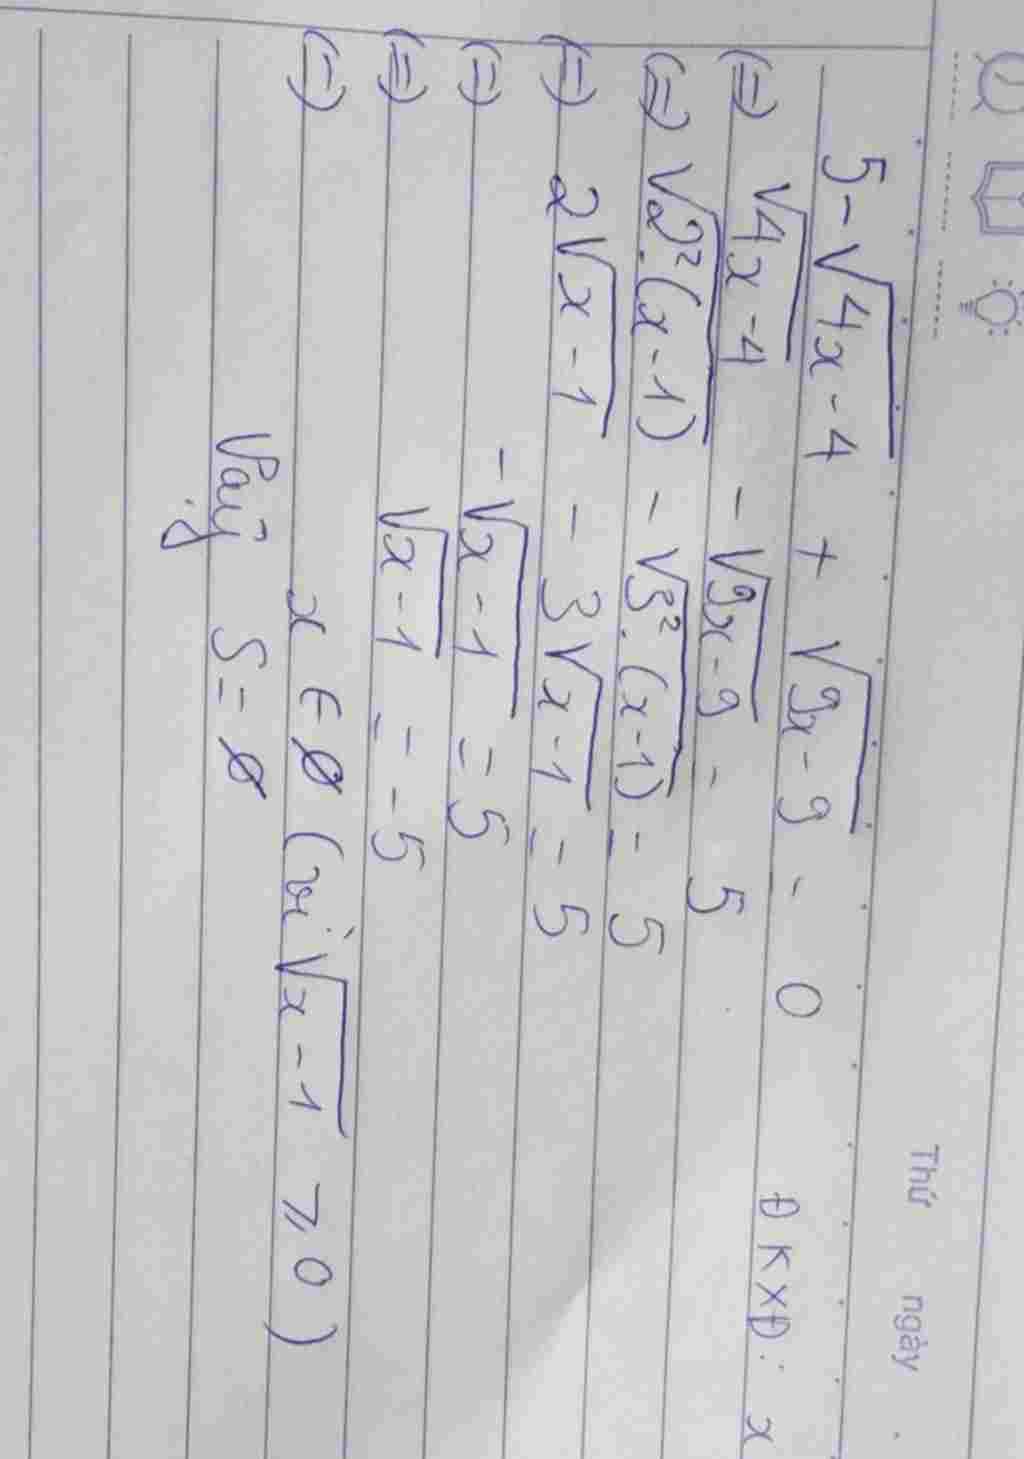 Thứ ngày .
5 - √(4x - 4) + √(9x - 9) = 0 ĐKXĐ: x
(=) √(4x - 4) - √(9x - 9) = 5
(=) √(2².(x - 1)) - √(3².(x - 1)) = 5
(=) 2√(x - 1) - 3√(x - 1) = 5
(=) -√(x - 1) = 5
(=) √(x - 1) = -5
(=) x ∈ ∅ (vì √(x - 1) ⩾ 0)
Vậy S = ∅